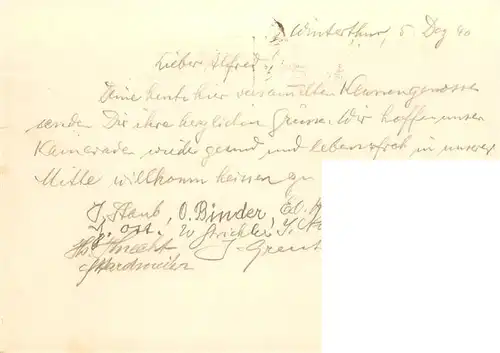 Winterthur, 5 Dez 40
Lieber Alfred!
Deine heute hier versammelten Klassengenossen
senden Dir ihre herzlichen Grüsse. Wir hoffen unsern
Kameraden wieder gesund und lebensfroh in unserer
Mitte willkomm heissen zu
J. Staub, O. Binder, Ed.
J. Ott. W Strickler J.
Hs. Knecht J. Greut